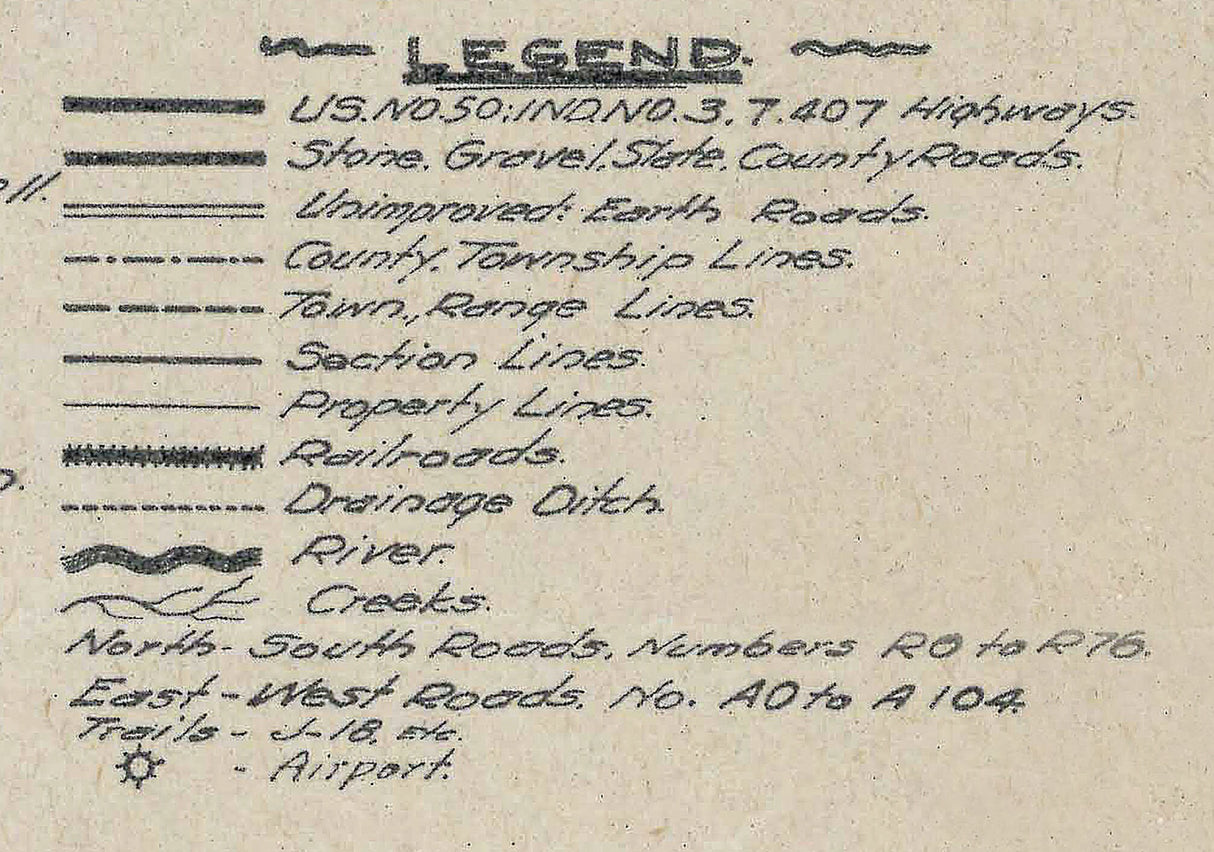 LEGEND.
U.S.NO.50:IND.NO.3.7.407 Highways.
Stone. Gravel. Slate. County Roads.
Unimproved: Earth Roads.
County. Township Lines.
Town., Range Lines.
Section Lines.
Property Lines.
Railroads.
Drainage Ditch.
River.
Creeks.
North-South Roads. Numbers R0 to R76.
East-West Roads. No. A0 to A 104.
Trails - J-18. etc.
- Airport.